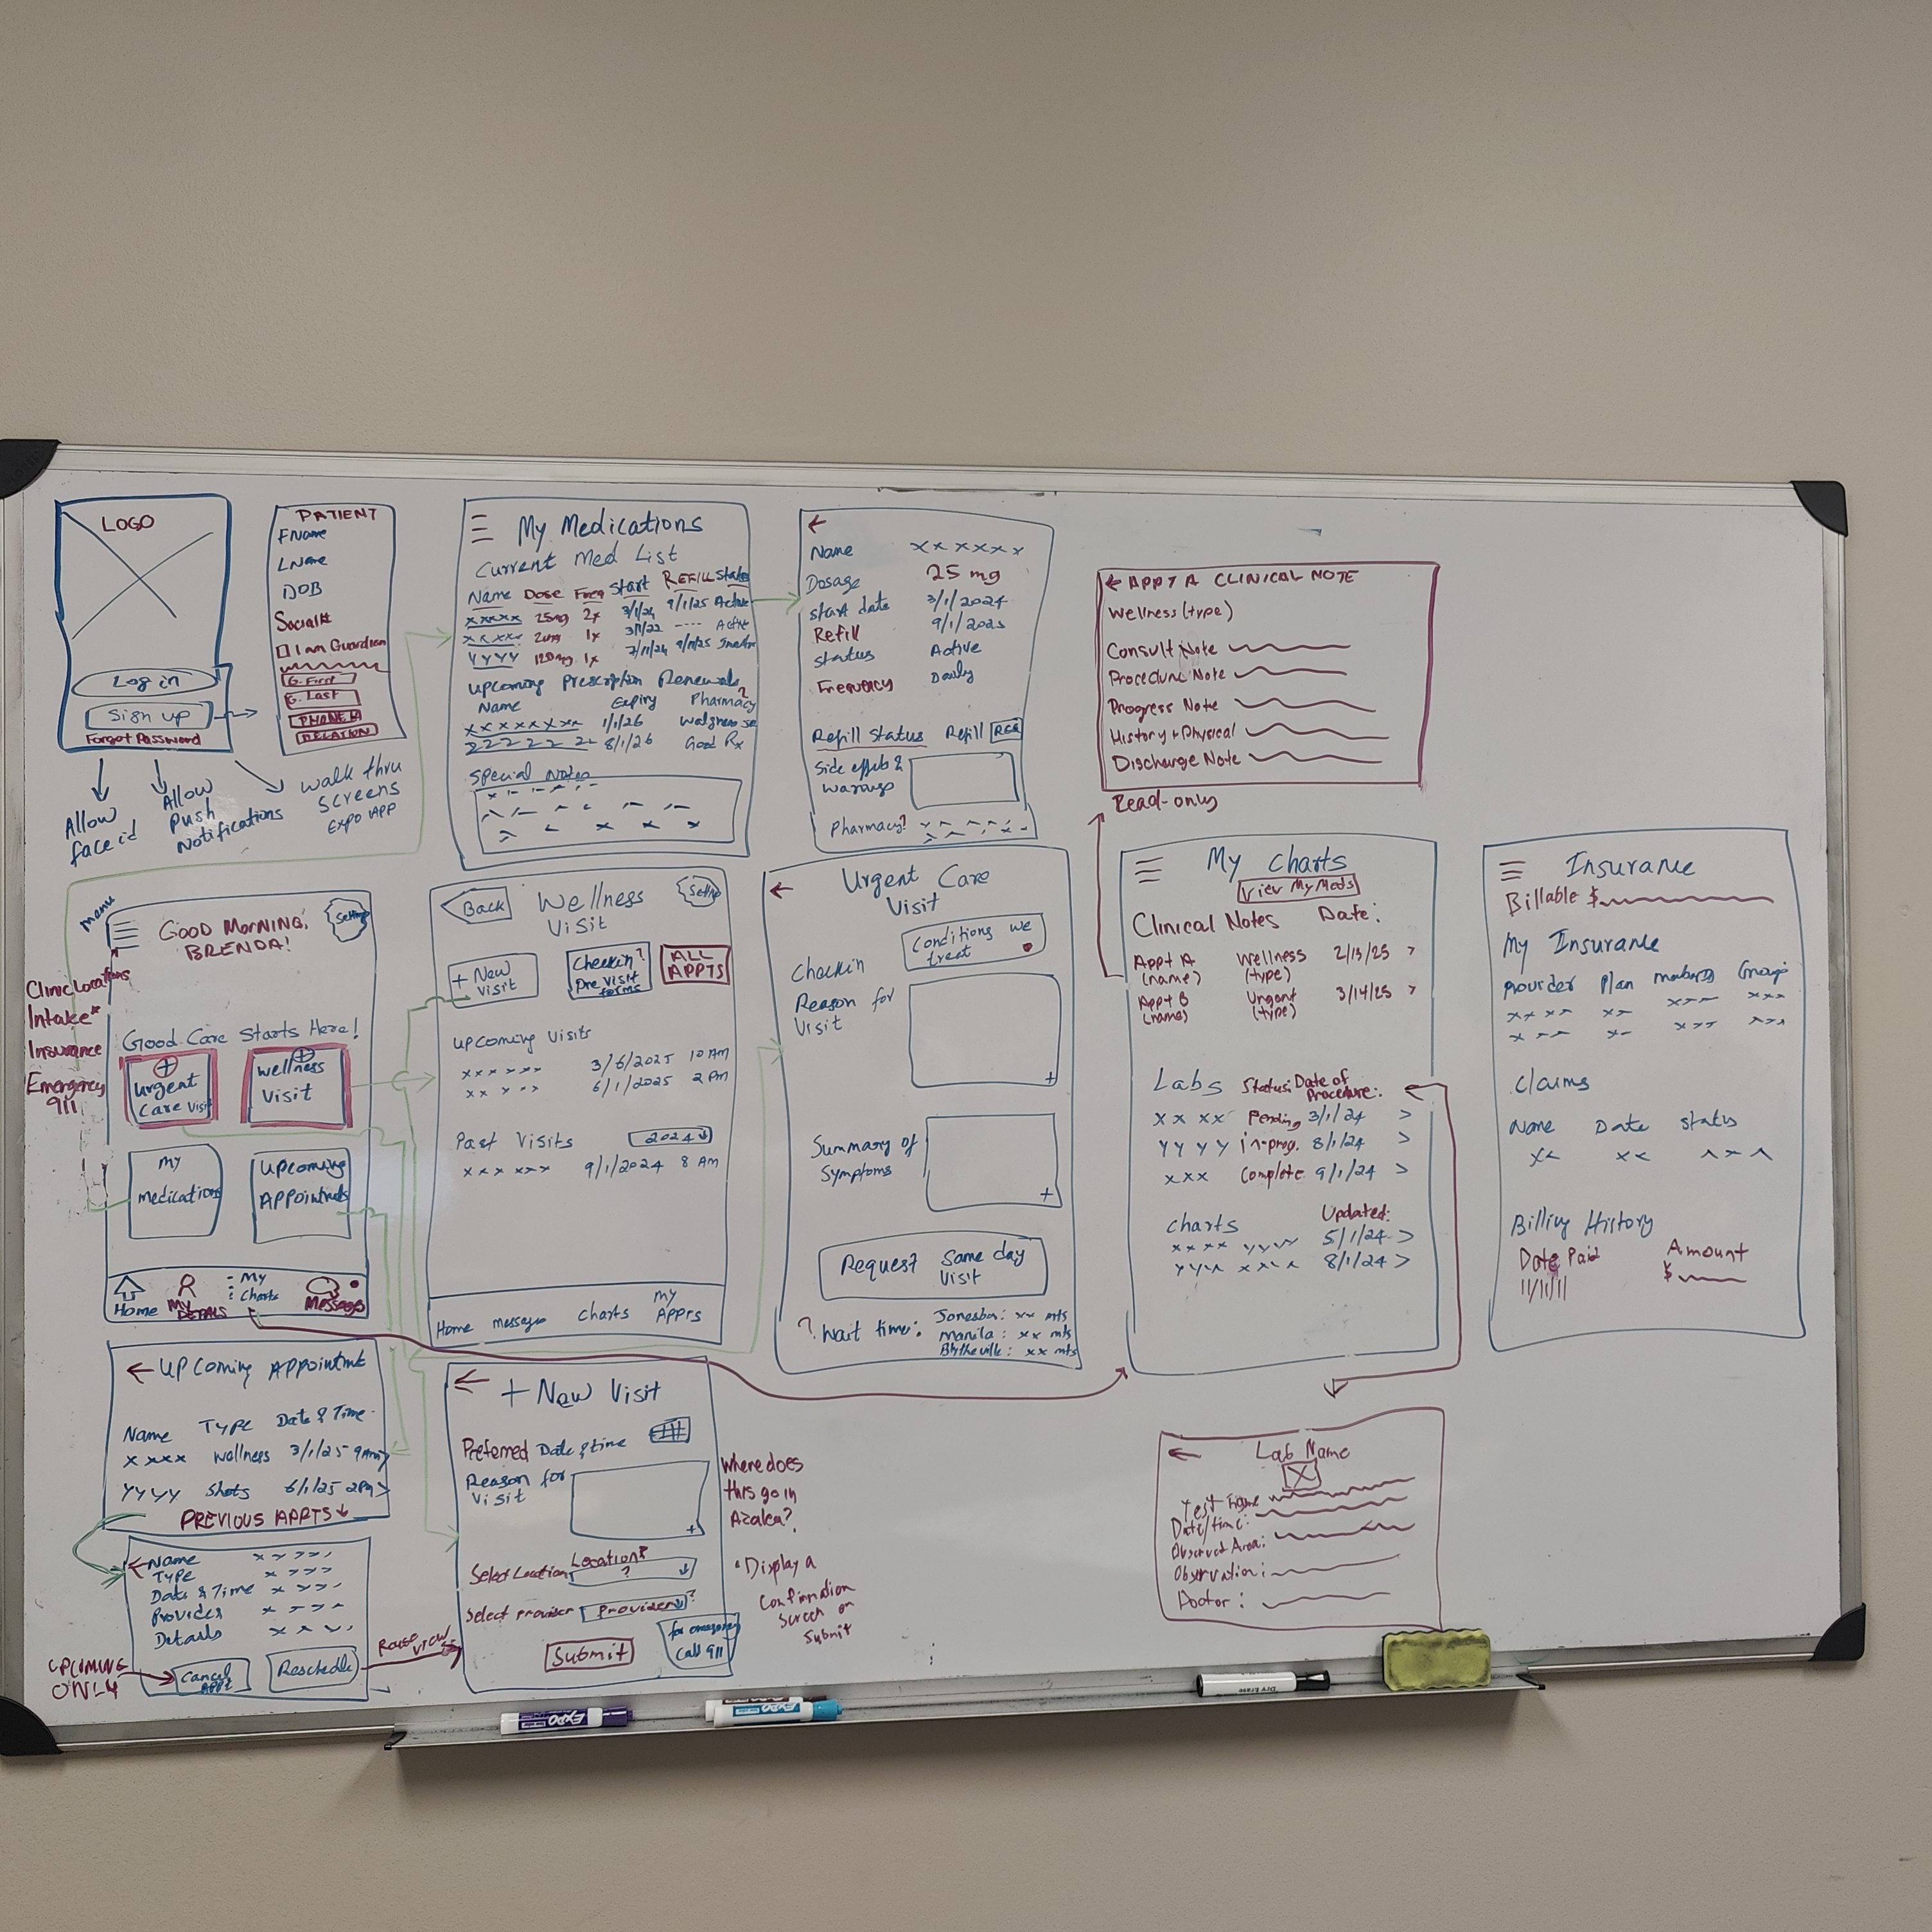 LOGO
Log in
Sign up
Forgot Password
Allow
face id
Allow
Push
Notifications
walk thru
screens
EXPO APP
PATIENT
FName
LName
DOB
Social#
I am Guardian
G. First
G. Last
PHONE #
RELATION
My Medications
Current Med List
Name Dose Freq Start REFILL Status
xxxxx 25mg 2x 3/1/24 9/1/25 Active
xxxxx 20mg 1x 3/1/22 ---- Active
YYYY 120mg 1x 7/11/24 9/11/25 Inactive
Upcoming Prescription Renewals
Name Expiry Pharmacy?
xxxxxxxx 1/1/26 Walgreens
22222 2 8/1/26 Good Rx
Special Notes
←
Name xxxxxx
Dosage 25 mg
Start date 3/1/2024
Refill 9/1/2025
Status Active
Frequency Daily
Refill Status Refill REQ
Side effects &
Warnings
Pharmacy?
← APPT A CLINICAL NOTE
Wellness (type)
Consult Note
Procedure Note
Progress Note
History + Physical
Discharge Note
Read-only
menu
GOOD MORNING,
BRENDA!
Settings
Clinic Locations
Intake*
Insurance
Emergency
911
Good Care Starts Here!
Urgent
Care Visit
Wellness
Visit
My
medications
Upcoming
APPointments
Home
MY
DETAILS
My
Charts
Messages
Back
Wellness
Visit
Settings
+ New
Visit
Checkin?
Pre Visit
forms
ALL
APPTS
Upcoming Visits
xxxxxx 3/6/2025 10 AM
xx xxx 6/1/2025 2 PM
Past Visits 2024↓
xxxxxx 9/1/2024 8 AM
Home messages Charts My
APPTS
←
Urgent Care
Visit
Conditions we
treat
Checkin
Reason for
Visit
+
Summary of
Symptoms
+
Request Same day
Visit
? Wait time: Jonesboro: xx mts
Manila: xx mts
Blytheville: xx mts
My Charts
View My Meds
Clinical Notes Date:
Appt A Wellness 2/13/25 >
(name) (type)
Appt B Urgent 3/14/25 >
(name) (type)
Labs Status: Date of
Procedure:
x x xx Pending 3/1/24 >
YYYY in-prog. 8/1/24 >
xxx Complete 9/1/24 >
Charts Updated:
xxxx yyyy 5/1/24 >
yyy xxxx 8/1/24 >
Insurance
Billable $
My Insurance
Provider Plan memberID Group
Claims
Name Date Status
Billing History
Date Paid Amount
11/11/11 $
← Upcoming Appointment
Name TYPE Date & Time
xxxx Wellness 3/1/25 9Am>
YYYY Shots 6/1/25 2Pm>
PREVIOUS APPTS ↓
←Name
Type
Date & Time
Provider
Details
UPCOMING
ONLY
Cancel
APPT
Reschedule
Reuse view
←
+ New Visit
Preferred Date & time
Reason for
Visit
+
Select Location Location?
?
Select provider Provider↓ ?
Submit
for emergency
Call 911
Where does
this go in
Azalea?
• Display a
Confirmation
Screen on
Submit
←
Lab Name
Test Name
Date/time:
Observed Area:
Observation:
Doctor:
EXPO
EXPO
Dry Erase